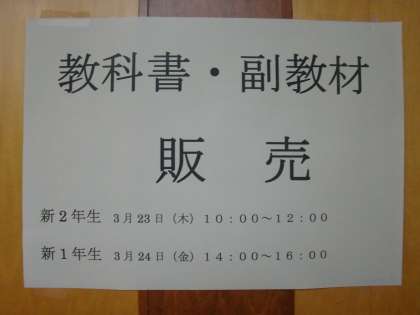 教科書・副教材
販　売
新２年生　３月２３日（木）１０：００～１２：００
新１年生　３月２４日（金）１４：００～１６：００